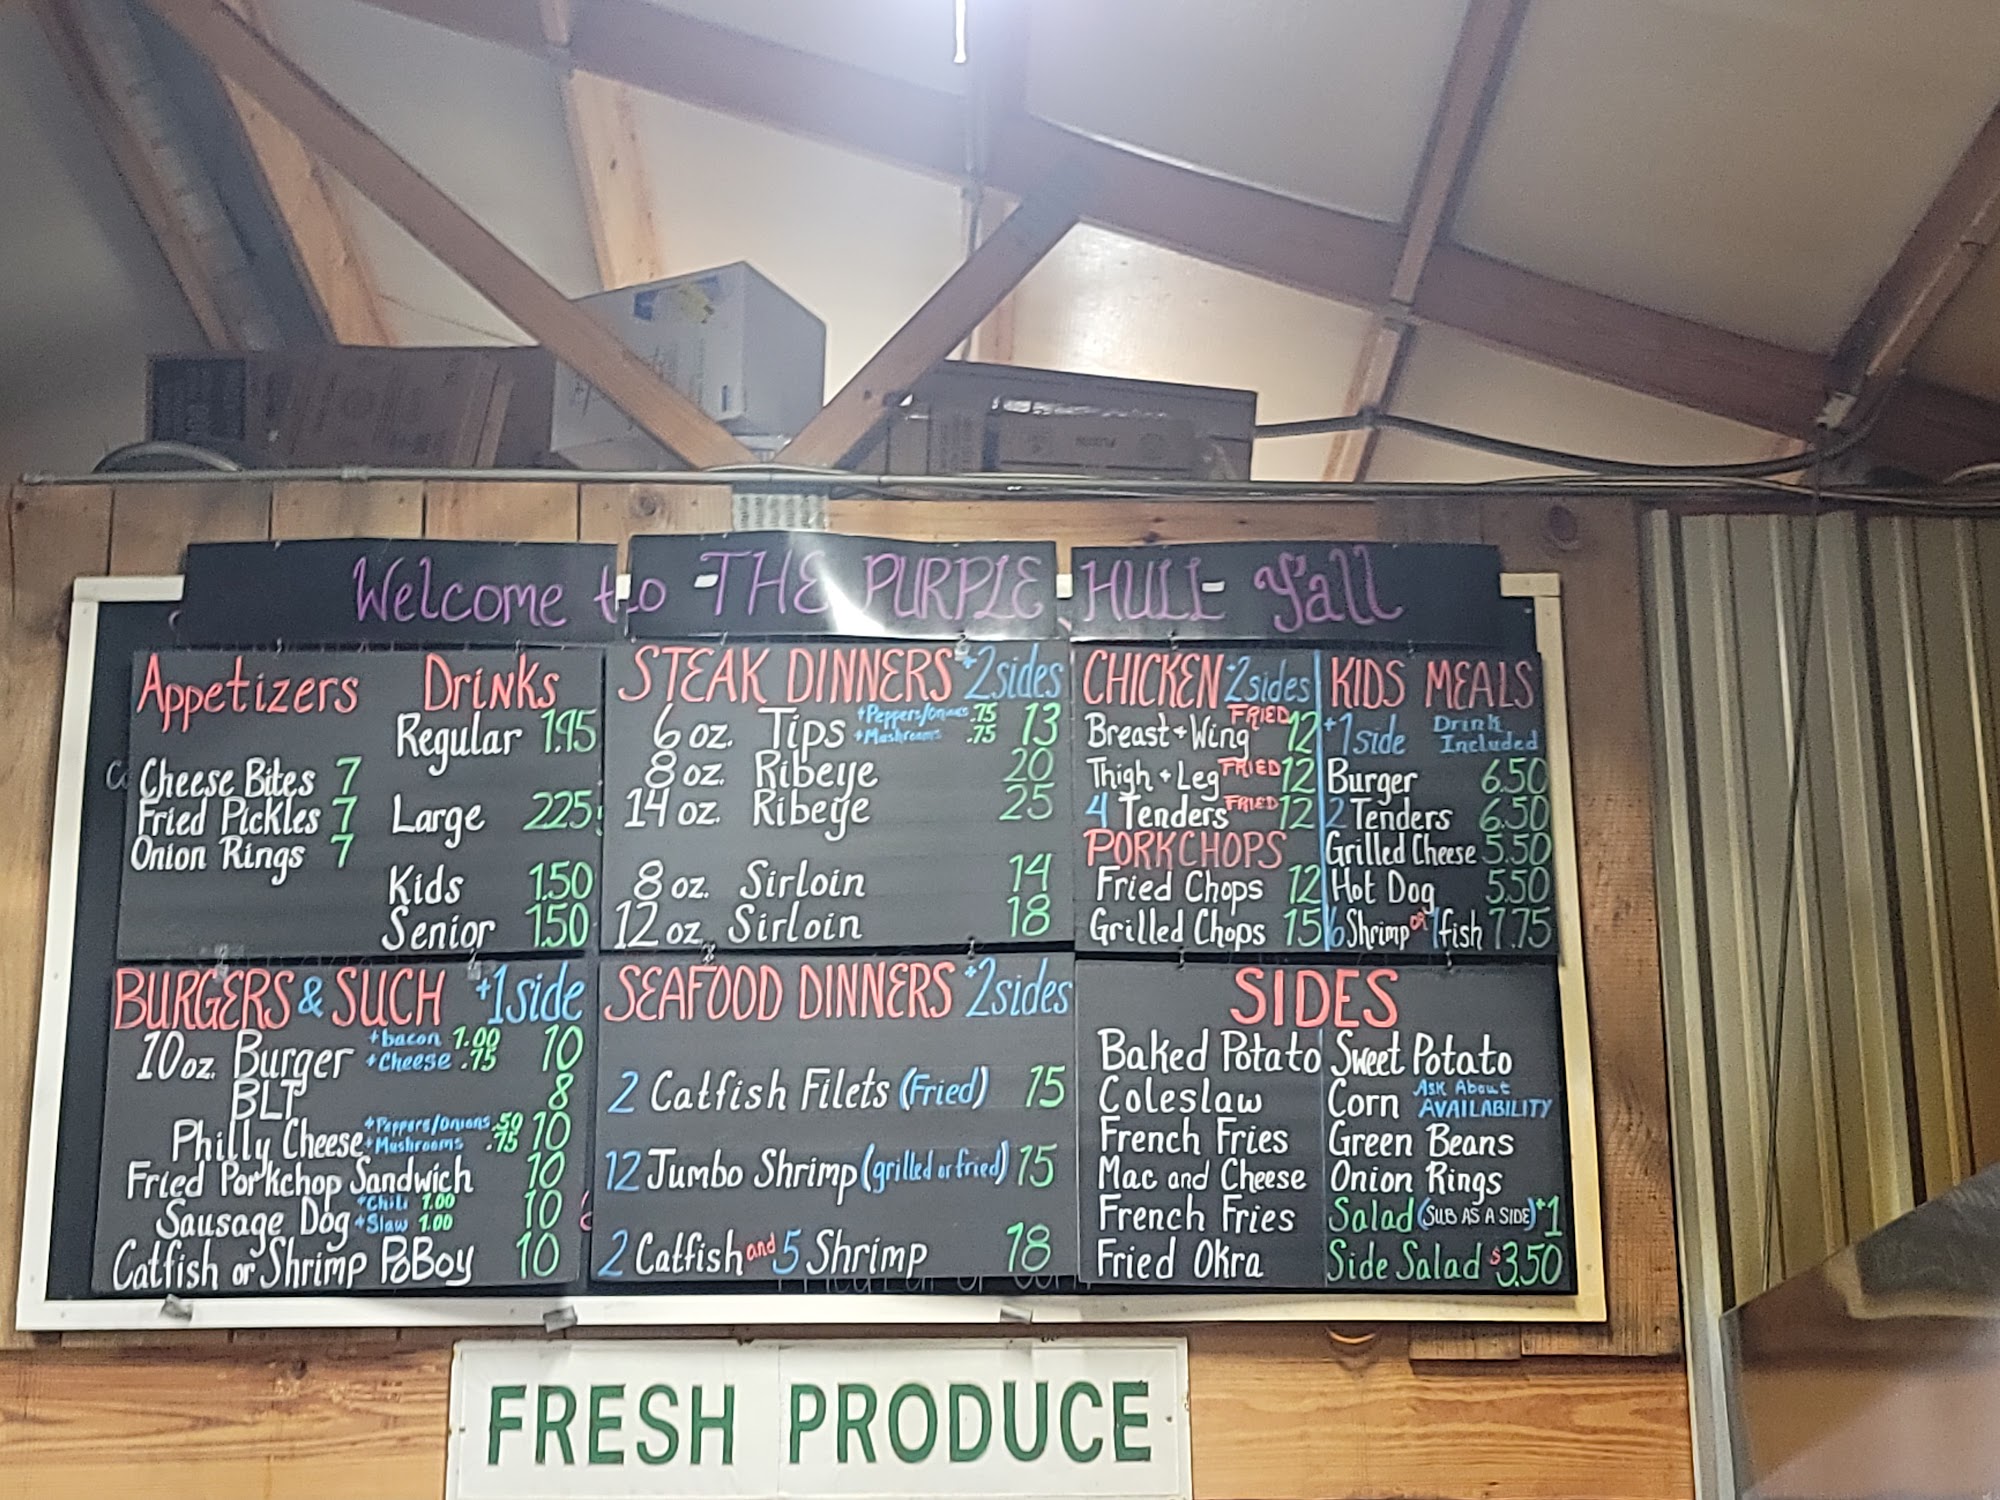 Welcome to THE PURPLE HULL Y'all
Appetizers
Cheese Bites 7
Fried Pickles 7
Onion Rings 7
Drinks
Regular 1.95
Large 2.25
Kids 1.50
Senior 1.50
STEAK DINNERS +2sides
6 oz. Tips +Peppers/Onions .75 +Mushrooms .75 13
8 oz. Ribeye 20
14 oz. Ribeye 25
8 oz. Sirloin 14
12 oz. Sirloin 18
CHICKEN +2sides
Breast + Wing FRIED 12
Thigh + Leg FRIED 12
4 Tenders FRIED 12
PORKCHOPS
Fried Chops 12
Grilled Chops 15
KIDS MEALS
+1side Drink Included
Burger 6.50
2 Tenders 6.50
Grilled Cheese 5.50
Hot Dog 5.50
6 Shrimp or 1 fish 7.75
BURGERS & SUCH +1side
10oz. Burger +bacon 1.00 +Cheese .75 10
BLT 8
Philly Cheese +Peppers/Onions .50 +Mushrooms .75 10
Fried Porkchop Sandwich 10
Sausage Dog +Chili 1.00 +Slaw 1.00 10
Catfish or Shrimp PoBoy 10
SEAFOOD DINNERS +2sides
2 Catfish Filets (Fried) 15
12 Jumbo Shrimp (grilled or fried) 15
2 Catfish and 5 Shrimp 18
SIDES
Baked Potato
Coleslaw
French Fries
Mac and Cheese
French Fries
Fried Okra
Sweet Potato
Corn Ask About AVAILABILITY
Green Beans
Onion Rings
Salad (SUB AS A SIDE) +1
Side Salad $3.50
FRESH PRODUCE